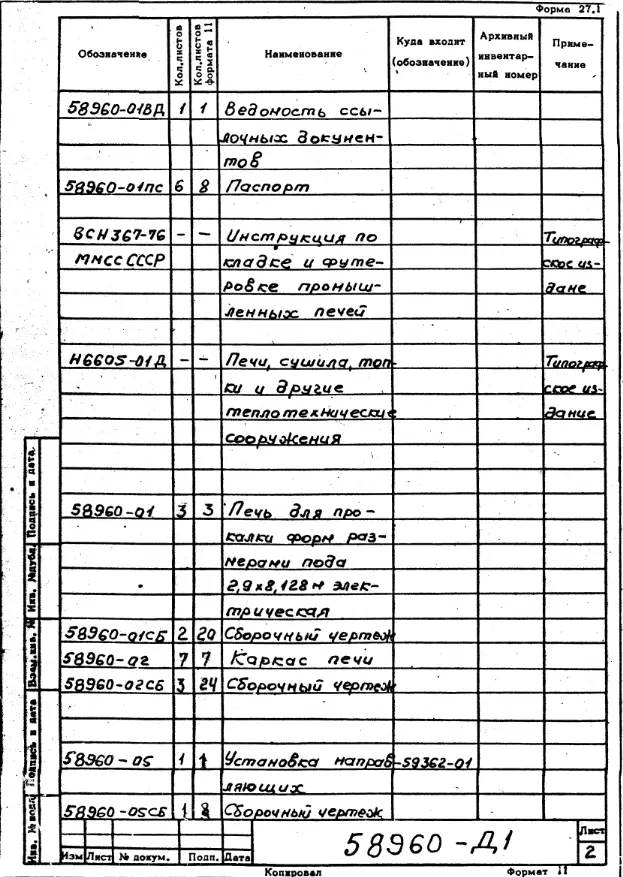 Форма 27.1
Обозначение Кол.листов Кол.листов формата 11 Наименование Куда входит (обозначение) Архивный инвентарный номер Примечание
58960-01ВД 1 1 Ведомость ссы-
лочных докумен-
тов
58960-01ПС 6 8 Паспорт
ВСН367-76 - - Инструкция по Типограф-
ММСС СССР кладке и футе- ское из-
ровке промыш- дание
ленных печей
Н6605-01Д - - Печи, сушила, топ- Типограф-
ки и другие ское из-
теплотехнические дание
сооружения
58960-01 3 3 Печь для про-
калки форм раз-
мерами пода
2,9х8,128м элек-
трическая
58960-01СБ 2 20 Сборочный чертеж
58960-02 7 7 Каркас печи
58960-02СБ 3 24 Сборочный чертеж
58960-05 1 1 Установка направ- 59362-01
ляющих
58960-05СБ 1 Сборочный чертеж
Инв. № подл. Подпись и дата Взам.инв. № Инв. №дубл. Подпись и дата.
58960-Д1
Лист
2
Изм Лист № докум. Подп. Дата
Копировал Формат 11